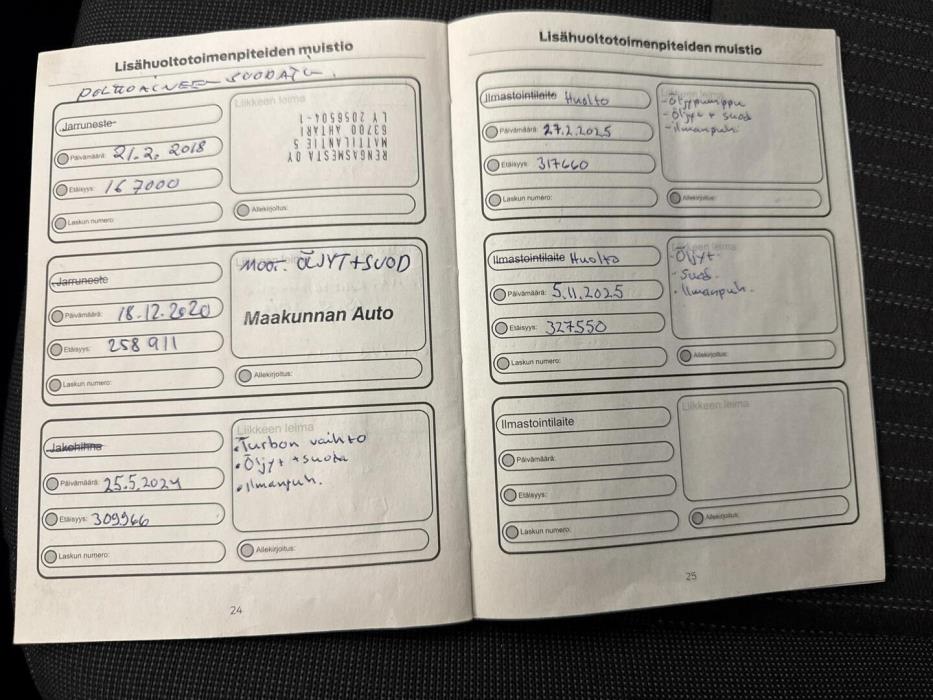 Lisähuoltotoimenpiteiden muistio
POLTTOAINEEN SUODATIN.
Jarruneste
Päivämäärä: 21.2.2018
Etäisyys: 167000
Laskun numero:
Liikkeen leima
RENGASMESTA OY
MATTILANTIE 5
63700 AHTARI
LY 2056504-1
Allekirjoitus:
Jarruneste
Päivämäärä: 18.12.2020
Etäisyys: 258911
Laskun numero:
Moot. ÖLJYT+SUOD
Maakunnan Auto
Allekirjoitus:
Jakohihna
Päivämäärä: 25.5.2024
Etäisyys: 309966
Laskun numero:
Liikkeen leima
• Turbon vaihto
• Öljyt + suoda
• Ilmanpuh.
Allekirjoitus:
24
Lisähuoltotoimenpiteiden muistio
Ilmastointilaite Huolto
Päivämäärä: 27.2.2025
Etäisyys: 317660
Laskun numero:
Liikkeen leima
- Öljypumppu
- Öljyt + suod
- ilmanpuh.
Allekirjoitus:
Ilmastointilaite Huolto
Päivämäärä: 5.11.2025
Etäisyys: 327550
Laskun numero:
Liikkeen leima
- Öljyt
- Suod.
• Ilmanpuh.
Allekirjoitus:
Ilmastointilaite
Päivämäärä:
Etäisyys:
Laskun numero:
Liikkeen leima
Allekirjoitus:
25